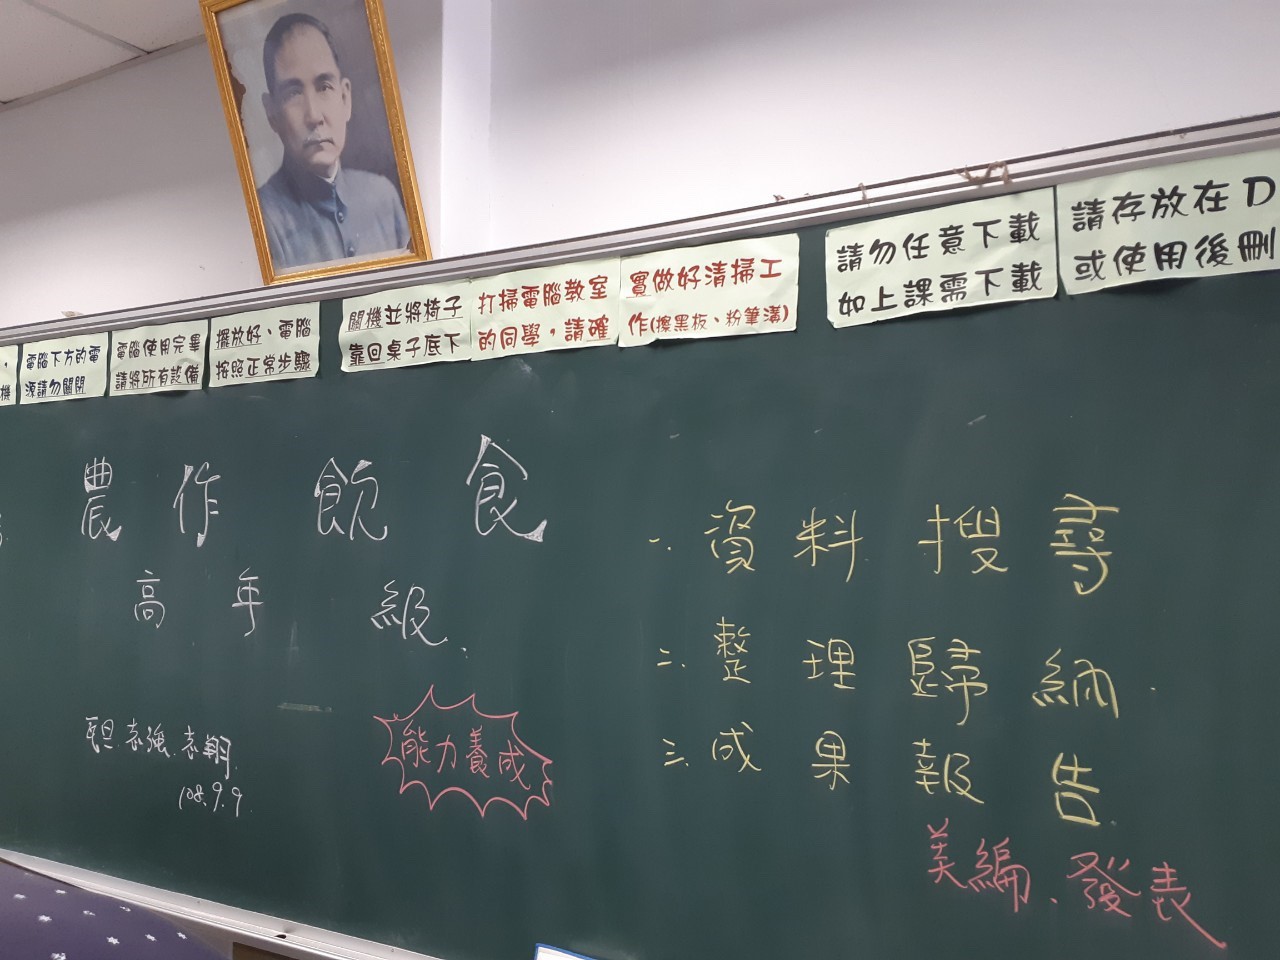 機
電腦下方的電
源請勿關閉
電腦使用完畢
請將所有設備
擺放好、電腦
按照正常步驟
關機並將椅子
靠回桌子底下
打掃電腦教室
的同學，請確
實做好清掃工
作(擦黑板、粉筆溝)
請勿任意下載
如上課需下載
請存放在D
或使用後刪
農作飲食
高年級.
志強.志翔.
108.9.9.
能力養成
一.資料搜尋
二.整理歸納.
三.成果報告.
美編、發表